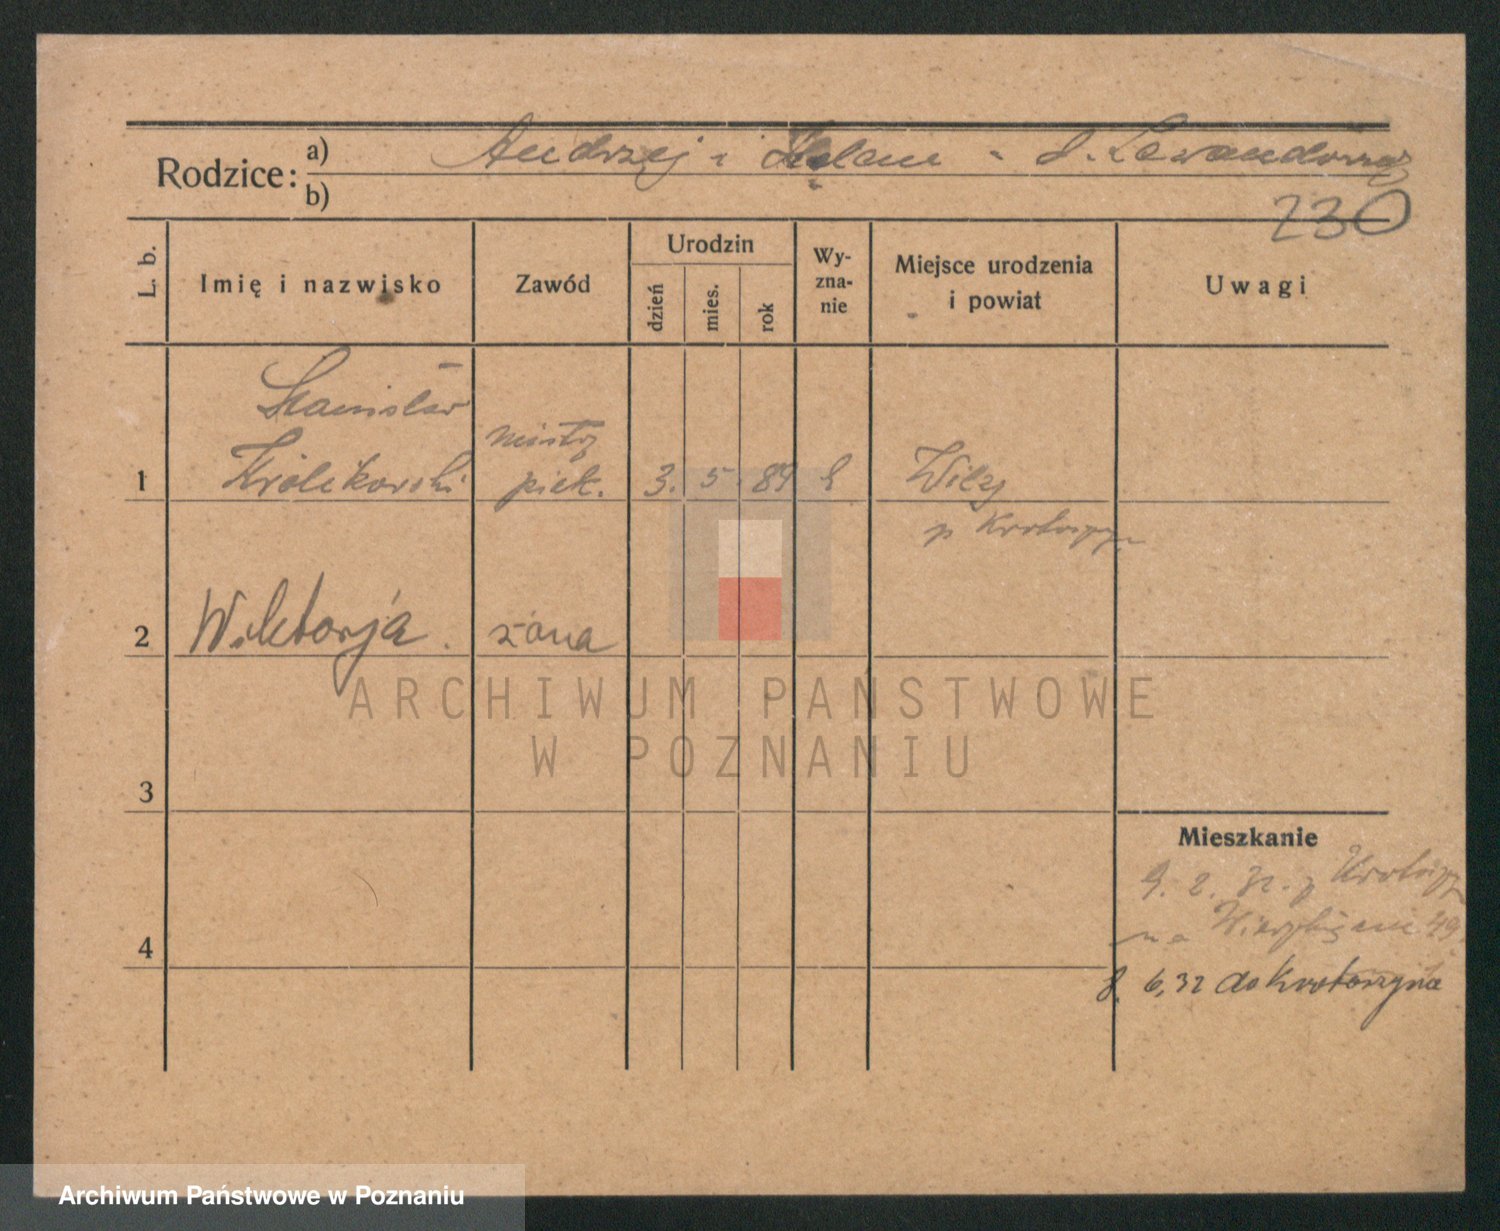 Rodzice: a) Andrzej i Helena
b)
230
L. b.
Imię i nazwisko
Zawód
Urodzin
dzień
mies.
rok
Wy-
zna-
nie
Miejsce urodzenia
i powiat
Uwagi
Stanisław
mistrz
1 Królikowski piek. 3. 5. 89
p Krotoszyn
2 Wiktorja. żona
ARCHIWUM PAŃSTWOWE
W POZNANIU
3
Mieszkanie
9. 2. 32. z Krotoszyn
na 49
4
8. 6, 32 do Krotoszyna
Archiwum Państwowe w Poznaniu